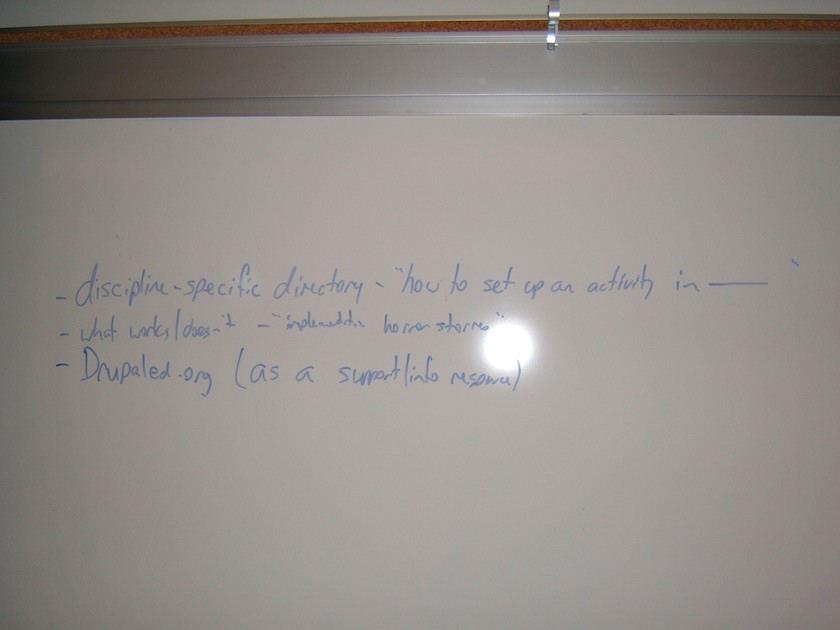 - discipline-specific directory - "how to set up an activity in ——— "
- what works/doesn't - "implementation horror stories"
- Drupaled.org (as a support/info resource)